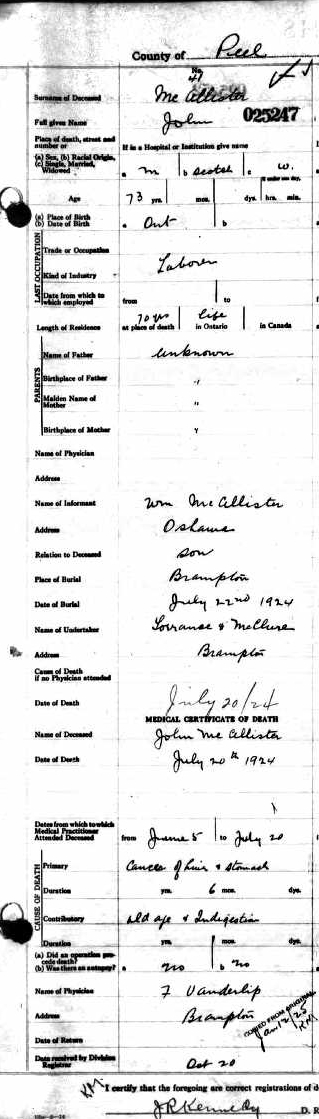 County of Peel
No. 41
Surname of Deceased Mc Allister
Full given Name John 025247
Place of death, street and number or If in a Hospital or Institution give name
(a) Sex, (b) Racial Origin, (c) Single, Married, Widowed a m b Scotch c W.
If under one day,
Age 73 yrs. mos. dys. hrs. min.
(a) Place of Birth
(b) Date of Birth a Ont b
LAST OCCUPATION
Trade or Occupation Laborer
Kind of Industry
Date from which to which employed from to
Length of Residence 70 yrs at place of death life in Ontario in Canada
PARENTS
Name of Father Unknown
Birthplace of Father "
Maiden Name of Mother "
Birthplace of Mother "
Name of Physician
Address
Name of Informant Wm McAllister
Address Oshawa
Relation to Deceased son
Place of Burial Brampton
Date of Burial July 22nd 1924
Name of Undertaker & McClure
Address Brampton
Cause of Death if no Physician attended
Date of Death July 20/24
MEDICAL CERTIFICATE OF DEATH
Name of Deceased John Mc Allister
Date of Death July 20th 1924
Dates from which to which Medical Practitioner Attended Deceased from June 5 to July 20
CAUSE OF DEATH
Primary Cancer of liver & stomach
Duration yrs. 6 mos. dys.
Contributory old age & Indigestion
Duration yrs. mos. dys.
(a) Did an operation precede death?
(b) Was there an autopsy? a no b no
Name of Physician F Vanderlip
Address Brampton
COPIED FROM ORIGINAL
Jan 12/25
KM
Date of Return
Date received by Division Registrar Oct 20
KM I certify that the foregoing are correct registrations of d
J R Kennedy D. R